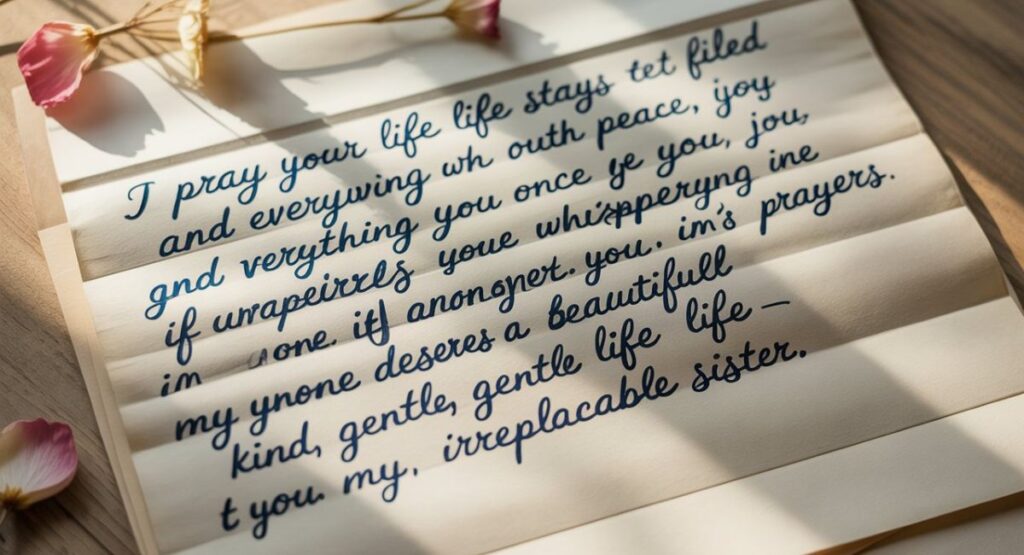 I pray your life life stays tet filed
and everywing wh outh peace, ijoy
gnd verything you once ge you, jou,
if unrapeirrls youe whispperyng ine
im one. it anongnert. you. im's prayers.
my ynone deseres a beautifull
kind, gentle, gentle life life —
t you. my, irreplacable sister.